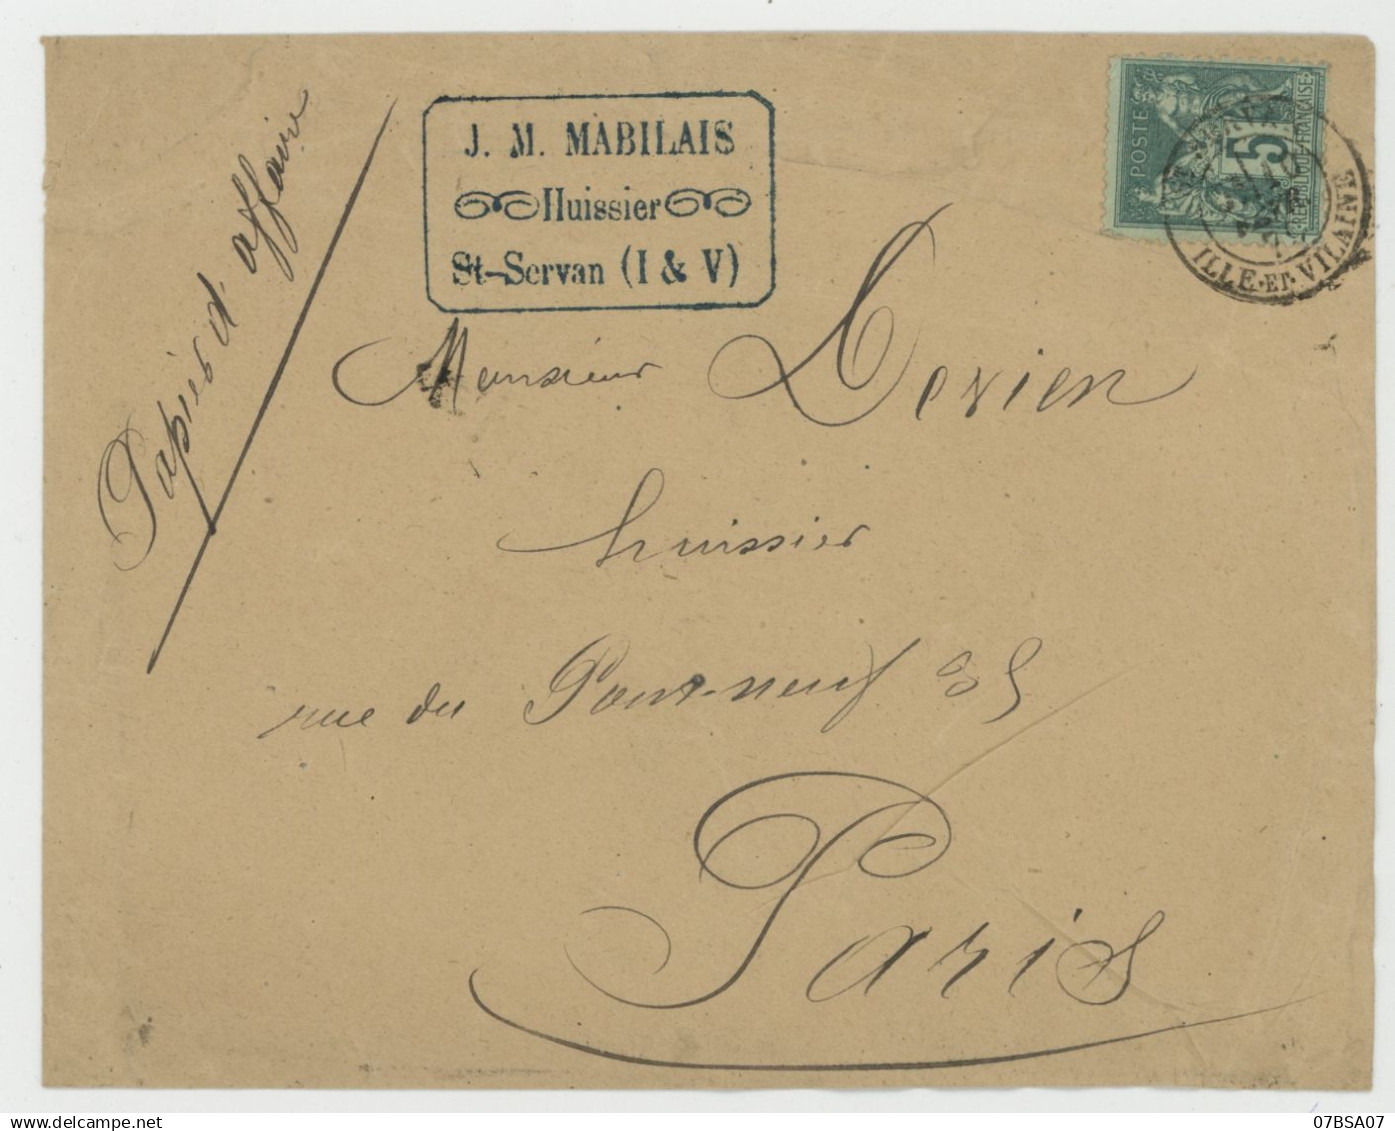 Papiers d'affaire
J. M. MABILAIS
Huissier
St-Servan (I & V)
POSTE
5
RÉPUBLIQUE FRANÇAISE
ILLE-ET-VILAINE
Monsieur Dexien
huissier
rue du Pont-neuf 35
Paris
07BSA07